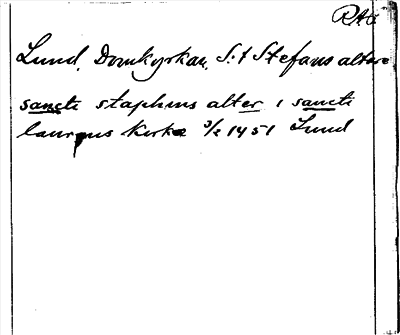 RAÄ
Lund, Domkyrkan, S:t Stefans altare
sancti staphins alter i sancti
laurens kirke 3/2 1451 Lund